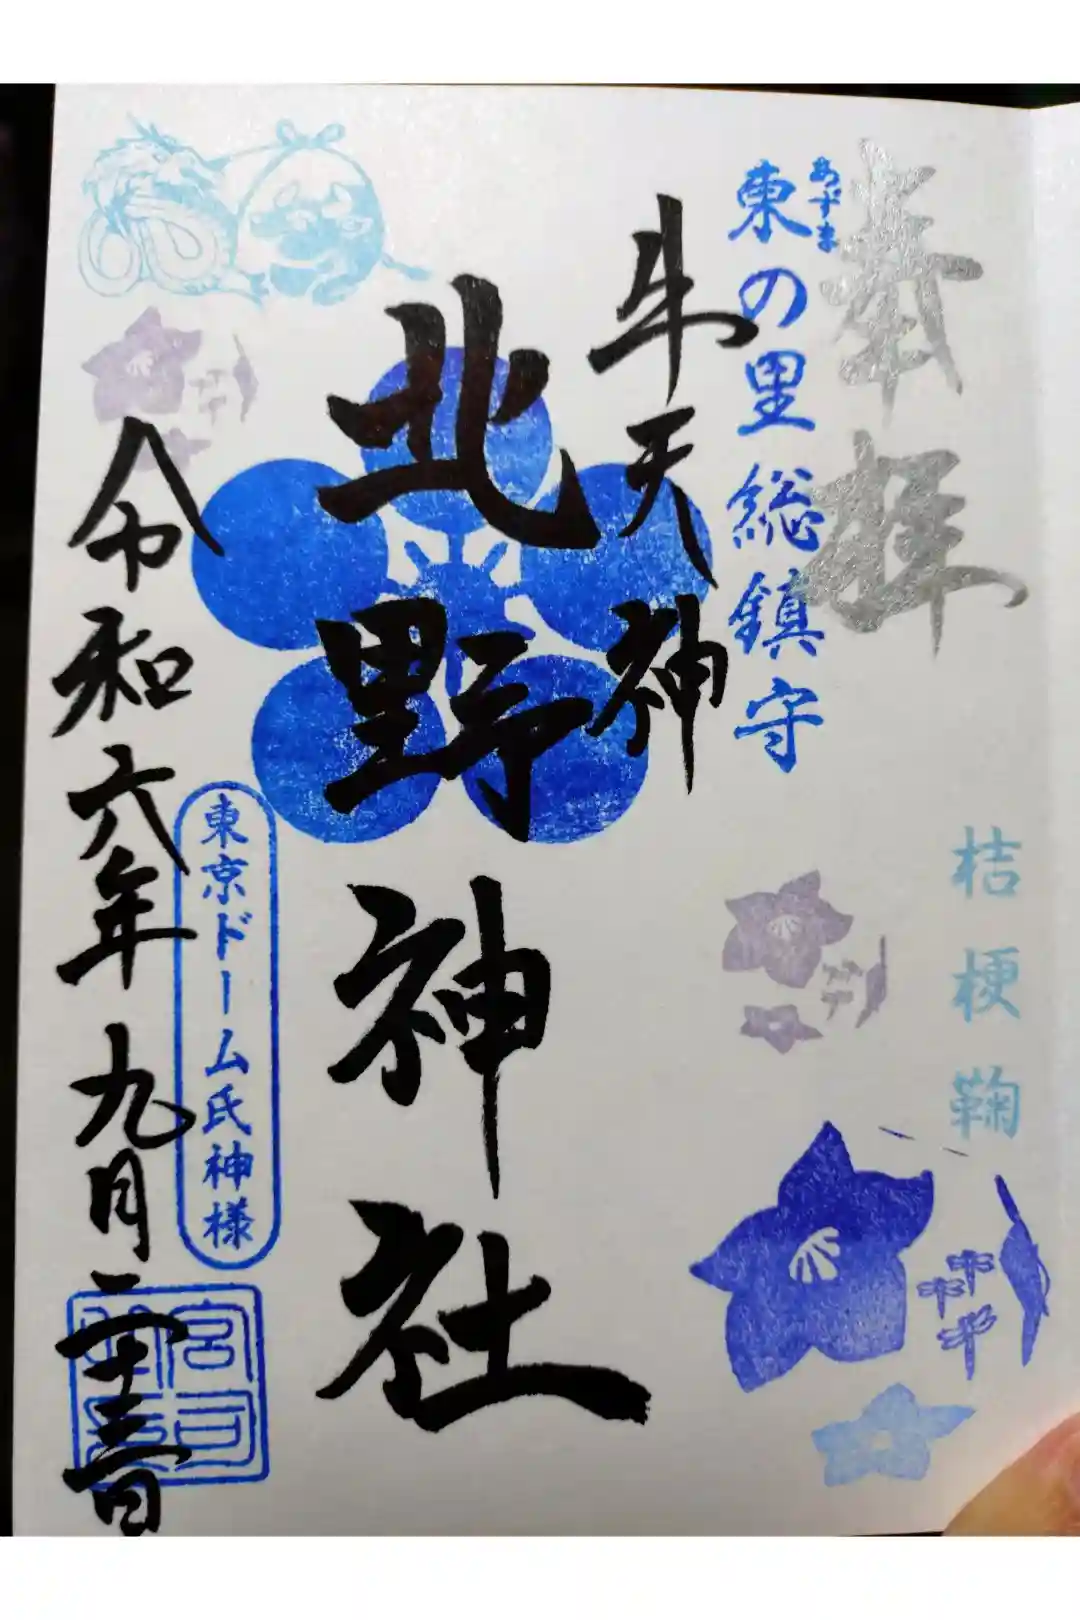 奉拝
あずま
東の里総鎮守
桔梗鞠
牛天神
北野神社
東京ドーム氏神様
令和六年九月二十三日
宮司